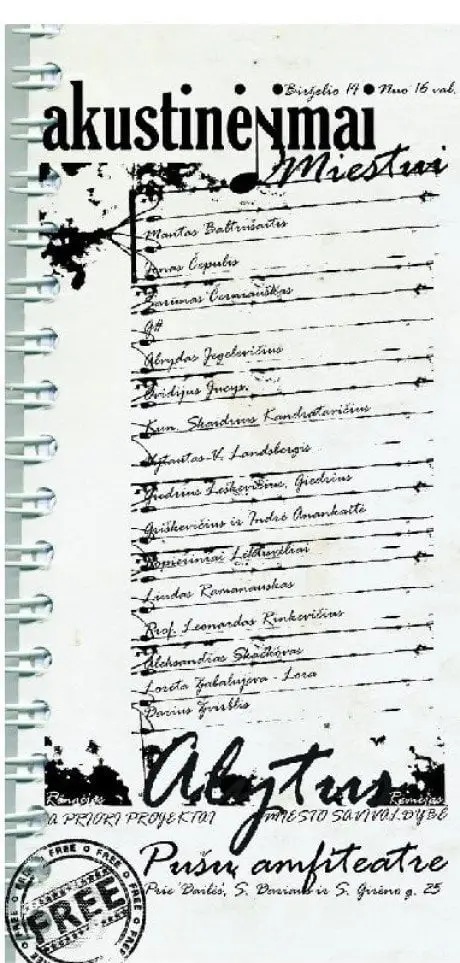 Birželio 14 • Nuo 16 val.
akustinėjimai
Miestui
Mantas Baltrušaitis
Jonas Čepulis
Šarūnas Černiauskas
G#
Alvydas Jegelevičius
Ovidijus Jucys
Kun. Skaidrius Kandratavičius
Vytautas-V. Landsbergis
Giedrius Leškevičius, Giedrius
Griškevičius ir Indrė Anankaitė
Komerciniai Lėktuvėliai
Liudas Ramanauskas
Prof. Leonardas Rinkevičius
Aleksandras Skačkovas
Loreta Zabalujeva - Lora
Darius Žvirblis
Alytus
Rengėjas Rėmėjas
A PRIORI PROJEKTAI MIESTO SAVIVALDYBĖ
Pušų amfiteatre
Prie Dailės, S. Dariaus ir S. Girėno g. 25
FREE
FREE FREE FREE FREE FREE